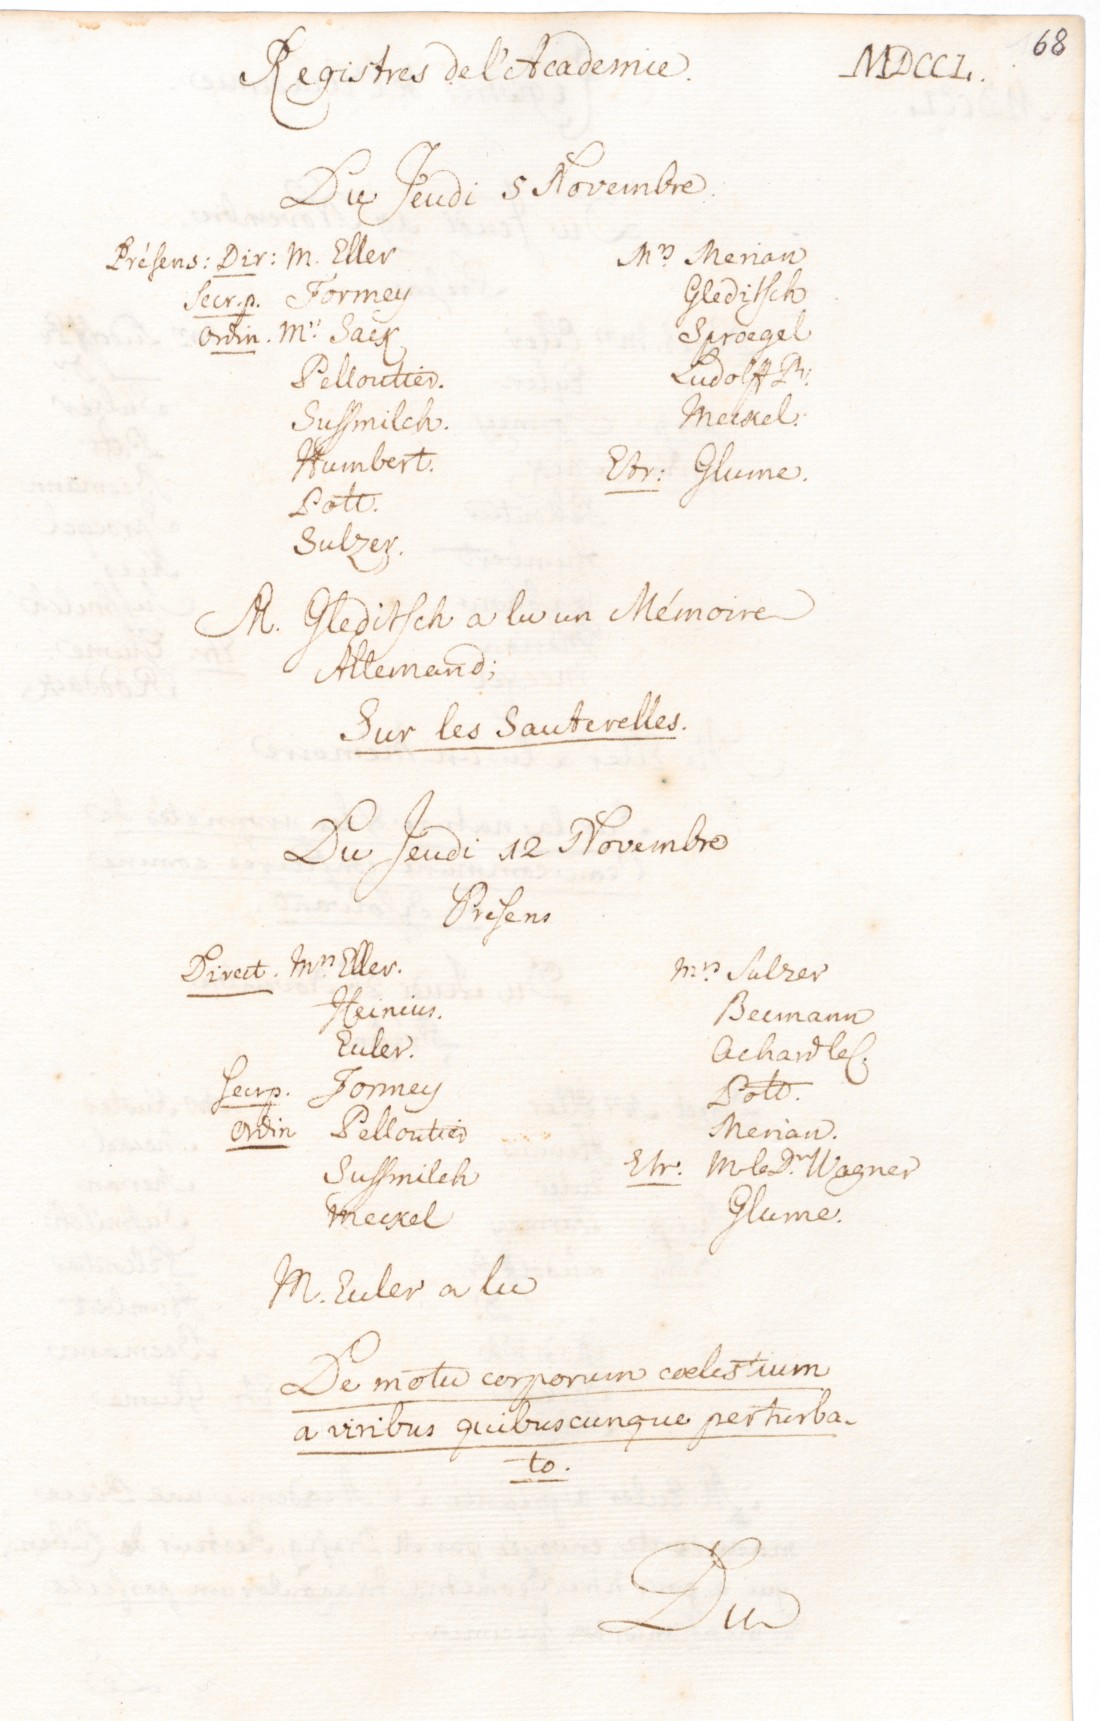 68
Registres de l'Academie. MDCCL.
Du Jeudi 5 Novembre.
Présens: Dir: M. Eller
Secr. p. Formey
Ordin. Mrs Sack
Pelloutier.
Sussmilch.
Humbert.
Pott.
Sulzer.
Mrs Merian
Gleditsch
Sproegel
Ludolff Pr:
Meckel.
Etr: Glume.
M. Gleditsch a lu un Mémoire
Allemand;
Sur les Sauterelles.
Du Jeudi 12 Novembre
Présens
Direct. Mrs Eller.
Heinius.
Euler.
Secr p. Formey
Ordin Pelloutier
Sussmilch
Meckel
Mrs Sulzer
Becmann
Achard le C.
Pott.
Merian.
Etr. M. le Dr Wagner
Glume.
M. Euler a lu
De motu corporum coelestium
a viribus quibuscunque perturba-
to.
Du